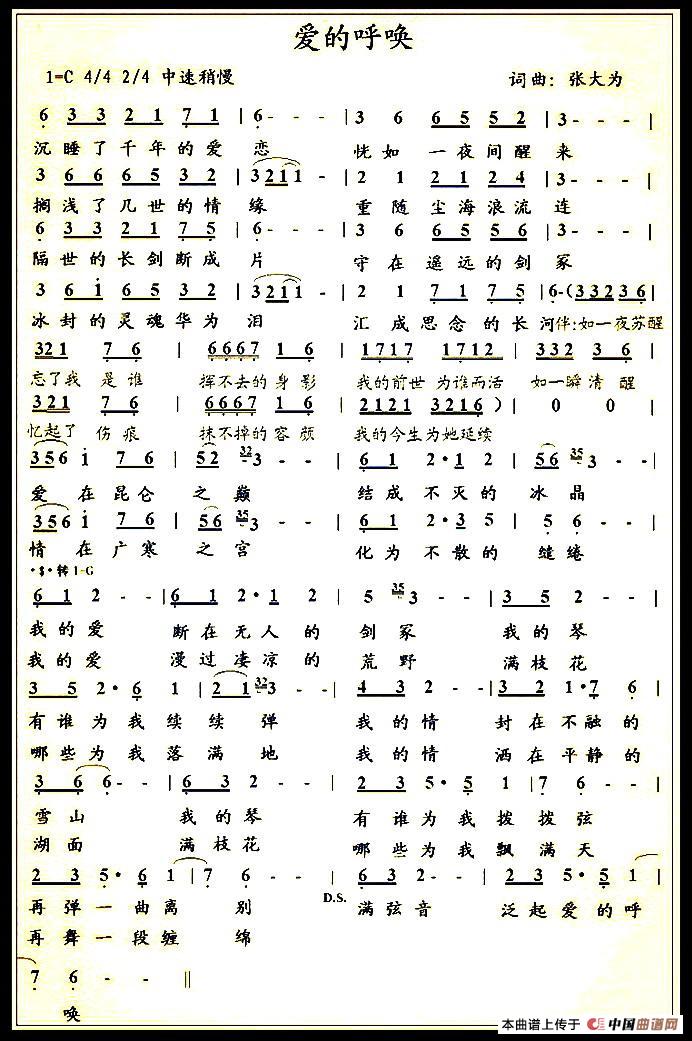 爱的呼唤
1=C 4/4 2/4 中速稍慢 词曲：张大为
6 3 3 2 1 7 1 | 6 - - - | 3 6 6 5 5 2 | 3 - - - |
沉睡了千年的爱恋 恍如一夜间醒来
3 6 6 6 5 3 2 | 3 2 1 1 - | 2 1 2 1 2 4 | 3 - - - |
搁浅了几世的情缘 重随尘海浪流连
6 3 3 2 1 7 5 | 6 - - - | 3 6 6 5 5 6 | 3 - - - |
隔世的长剑断成片 守在遥远的剑冢
3 6 i 6 5 3 2 | 3 2 1 1 - | 2 1 7 1 7 5 | 6 - (3 3 2 3 6 |
冰封的灵魂华为泪 汇成思念的长河伴:如一夜苏醒
3 2 1 7 6 | 6 6 6 7 1 6 | 1 7 1 7 1 7 1 2 | 3 3 2 3 6 |
忘了我是谁 挥不去的身影 我的前世为谁而活 如一瞬清醒
3 2 1 7 6 | 6 6 6 7 1 6 | 2 1 2 1 3 2 1 6 ) | 0 0 |
忆起了伤痕 抹不掉的容颜 我的今生为她延续
3 5 6 i 7 6 | 5 2 32 3 - - | 6 1 2 · 1 2 | 5 6 35 3 - - |
爱在昆仑之巅 结成不灭的冰晶
3 5 6 i 7 6 | 5 6 35 3 - - | 6 1 2 · 3 5 | 5 6 - - |
情在广寒之宫 化为不散的缱绻
·$·转1=G
6 1 2 - - | 6 1 2 · 1 2 | 5 35 3 - - | 3 5 2 - - |
我的爱 断在无人的剑冢 我的琴
我的爱 漫过凄凉的荒野 满枝花
3 5 2 · 6 1 | 2 1 32 3 - - | 4 3 2 - - | 3 2 1 · 7 6 |
有谁为我续续弹 我的情 封在不融的
哪些为我落满地 我的情 洒在平静的
3 6 6 - - | 6 3 2 - - | 2 3 5 · 5 1 | 7 6 - - |
雪山 我的琴 有谁为我拨拨弦
湖面 满枝花 哪些为我飘满天
2 3 5 · 6 1 | 7 6 - - | 6 3 2 - - | 2 3 5 · 5 1 |
D.S.
再弹一曲离别 满弦音 泛起爱的呼
再舞一段缠绵
7 6 - - ‖
唤
本曲谱上传于 中国曲谱网